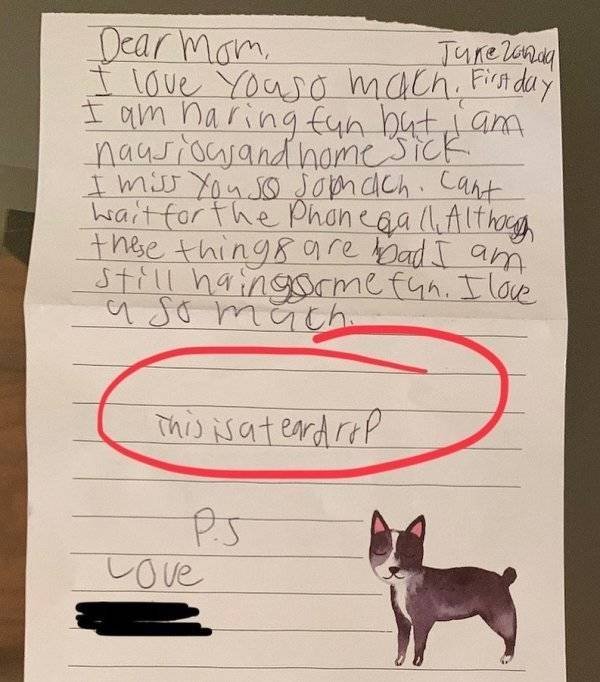 Dear Mom,
I love you so mach. First day
I am having fun but i am
nausious and home sick
I miss you so so mach. Cant
wait for the Phone call, Although
these things are bad I am
still haing some fun. I love
u so much.
This is a teardrop
P.S
Love